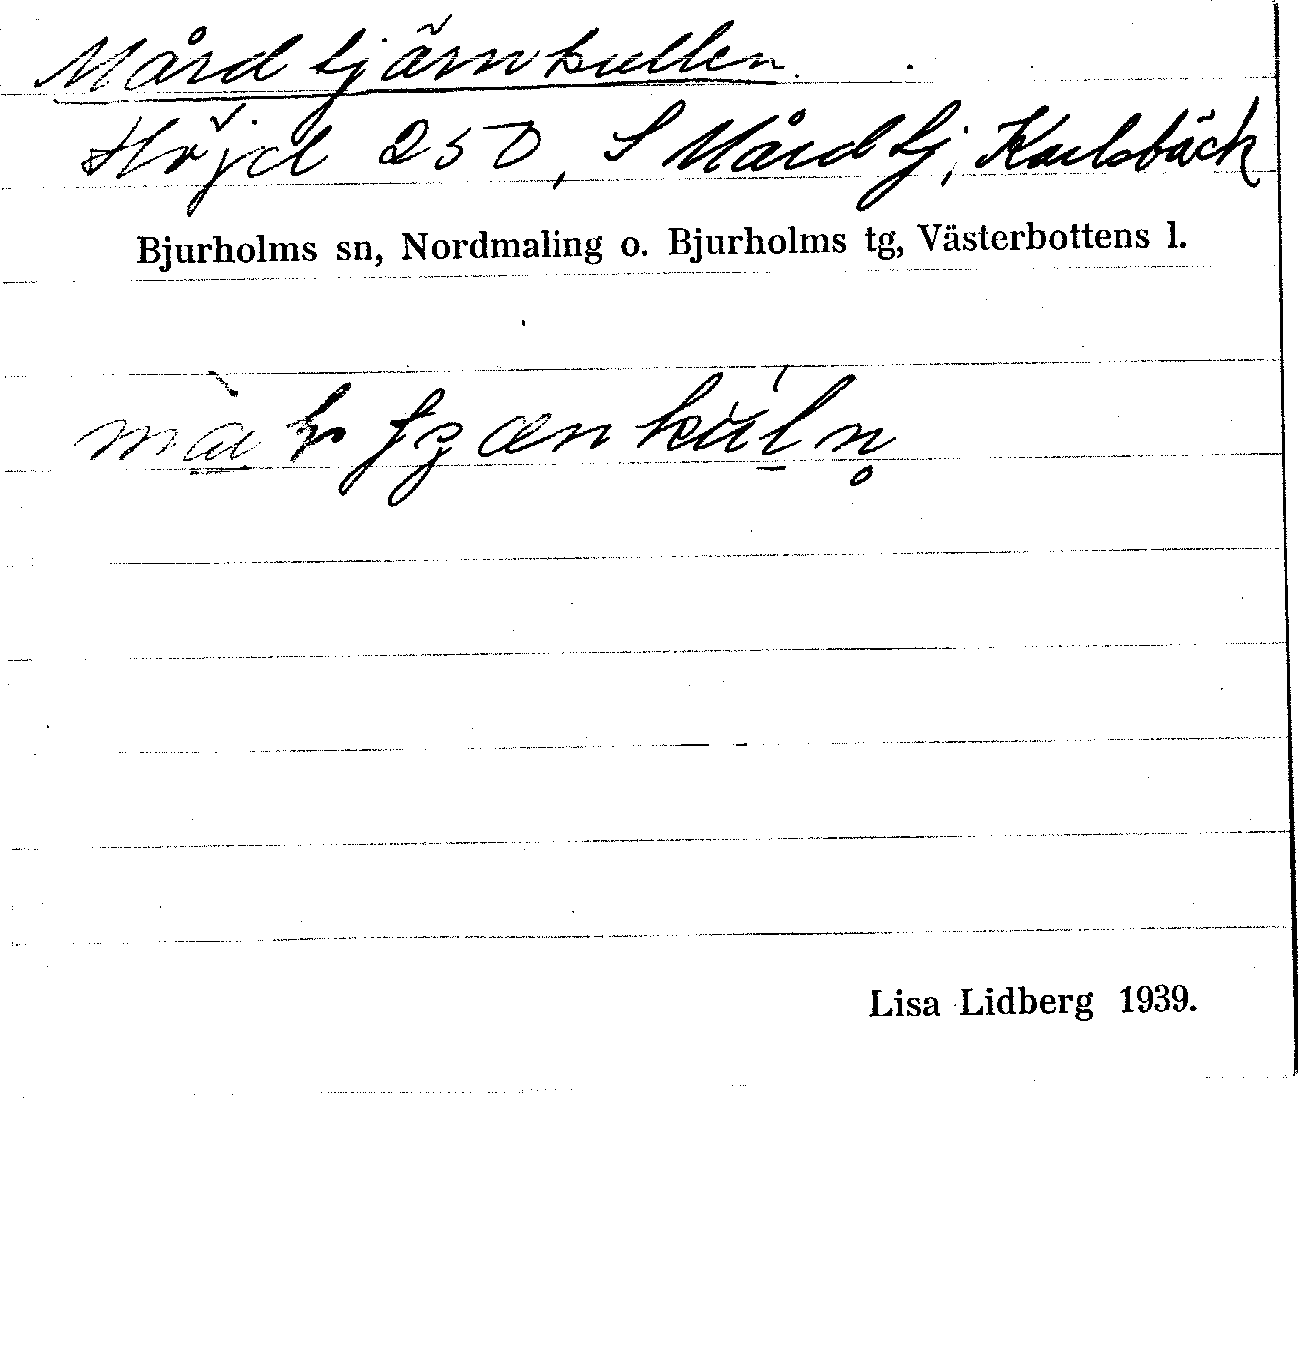 Mårdtjärnkullen.
Höjd 250, S Mårdtj, Karlsbäck
Bjurholms sn, Nordmaling o. Bjurholms tg, Västerbottens l.
Lisa Lidberg 1939.